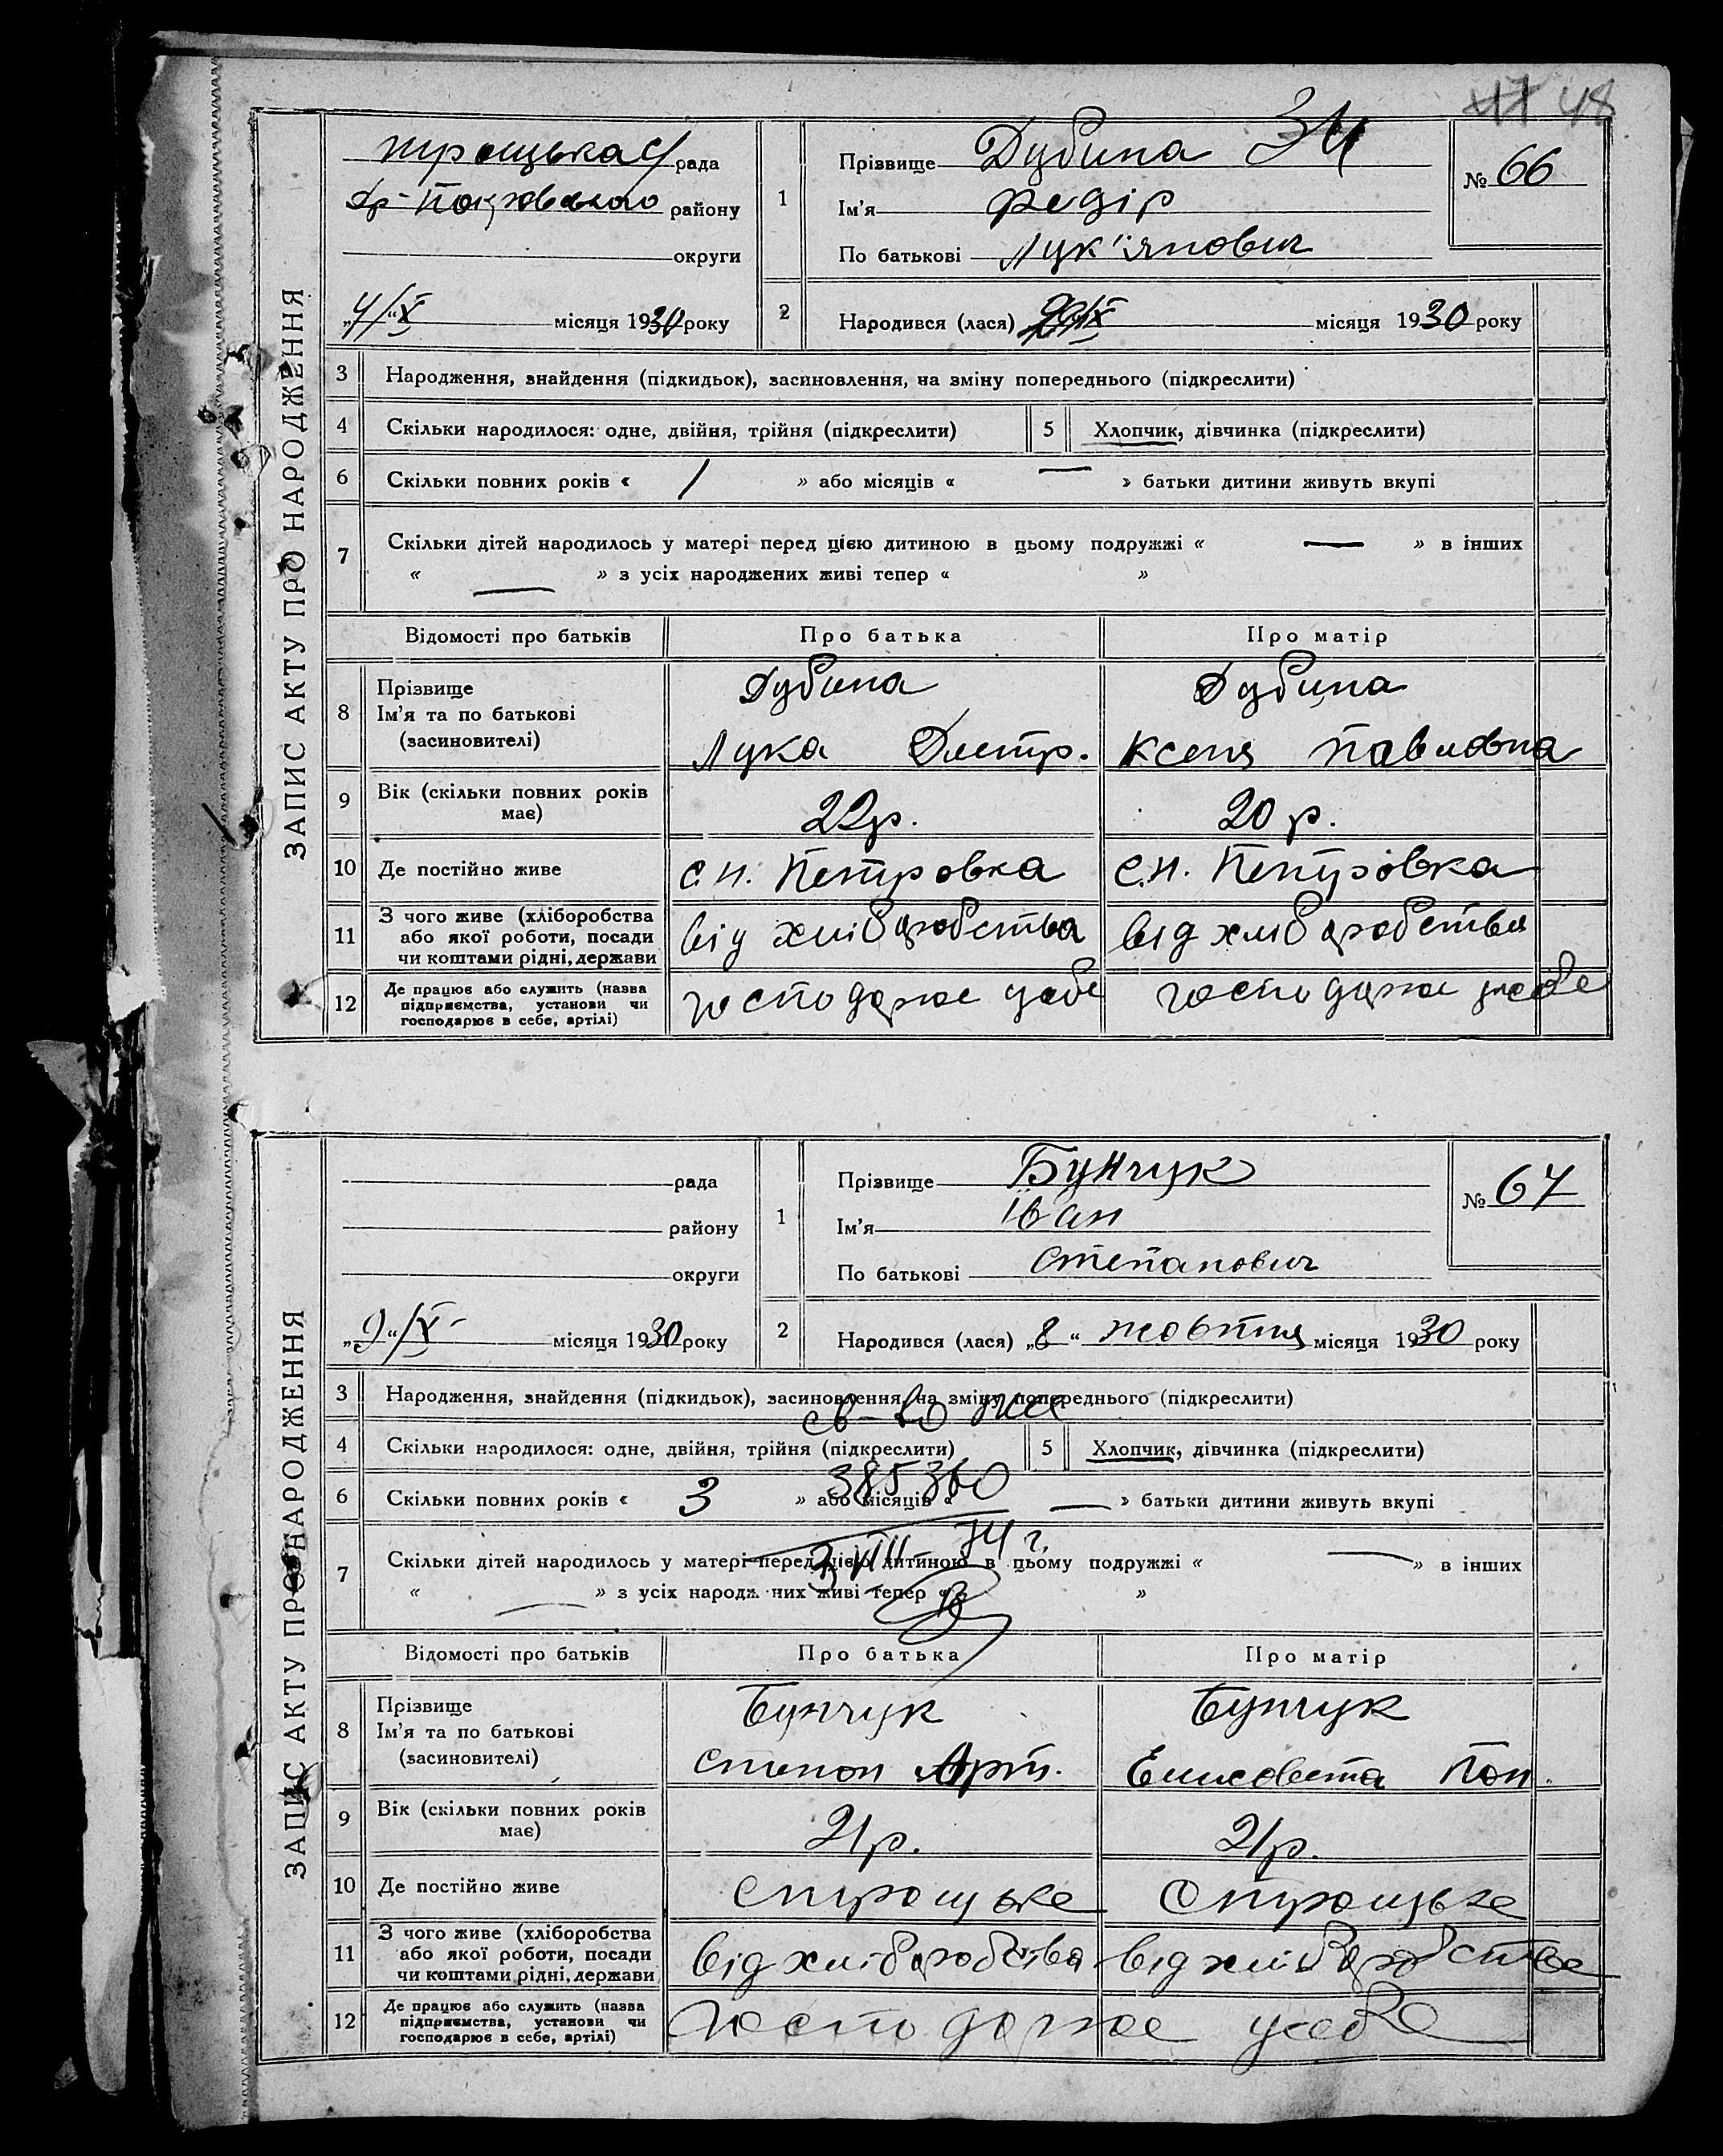 48
ЗАПИС АКТУ ПРО НАРОДЖЕННЯ
троицька с/рада
Др-Покровського району
округи
„4/“X місяця 1930 року
1
Прізвище Дубина
Ім'я Федір
По батькові Лук'янович
№ 66
2
Народився (лася) місяця 1930 року
3 Народження, знайдення (підкидьок), засиновлення, на зміну попереднього (підкреслити)
4 Скільки народилося: одне, двійня, трійня (підкреслити) 5 Хлопчик, дівчинка (підкреслити)
6 Скільки повних років « 1 » або місяців « — » батьки дитини живуть вкупі
7 Скільки дітей народилось у матері перед цією дитиною в цьому подружжі « — » в інших
« — » з усіх народжених живі тепер « »
Відомості про батьків Про батька Про матір
8 Прізвище Дубина Дубина
Ім'я та по батькові
(засиновителі) Лука Дметр. Ксеня Павловна
9 Вік (скільки повних років має) 22р. 20 р.
10 Де постійно живе с н. Петровка с.н. Петровка
11 З чого живе (хліборобства або якої роботи, посади чи коштами рідні, держави від хліборобства від хліборобства
12 Де працює або служить (назва підприємства, установи чи господарює в себе, артілі) господарює у себе господарює у себе
ЗАПИС АКТУ ПРО НАРОДЖЕННЯ
рада
району
округи
„9“/X- місяця 1930 року
1
Прізвище Бунчук
Ім'я Іван
По батькові Степанович
№ 67
2
Народився (лася) „8“ жовтня місяця 1930 року
3 Народження, знайдення (підкидьок), засиновлення, на зміну попереднього (підкреслити)
св-во
4 Скільки народилося: одне, двійня, трійня (підкреслити) 5 Хлопчик, дівчинка (підкреслити)
385360
6 Скільки повних років « 3 » або місяців « — » батьки дитини живуть вкупі
3 VIII - 74 г.
7 Скільки дітей народилось у матері перед цією дитиною в цьому подружжі « — » в інших
« — » з усіх народжених живі тепер « »
Відомості про батьків Про батька Про матір
8 Прізвище Бунчук Бунчук
Ім'я та по батькові
(засиновителі) Степон Арт. Елисовета Пон.
9 Вік (скільки повних років має) 21р. 21р.
10 Де постійно живе с троицьке с троицьке
11 З чого живе (хліборобства або якої роботи, посади чи коштами рідні, держави від хліборобства від хліборобства
12 Де працює або служить (назва підприємства, установи чи господарює в себе, артілі) господарює у себе